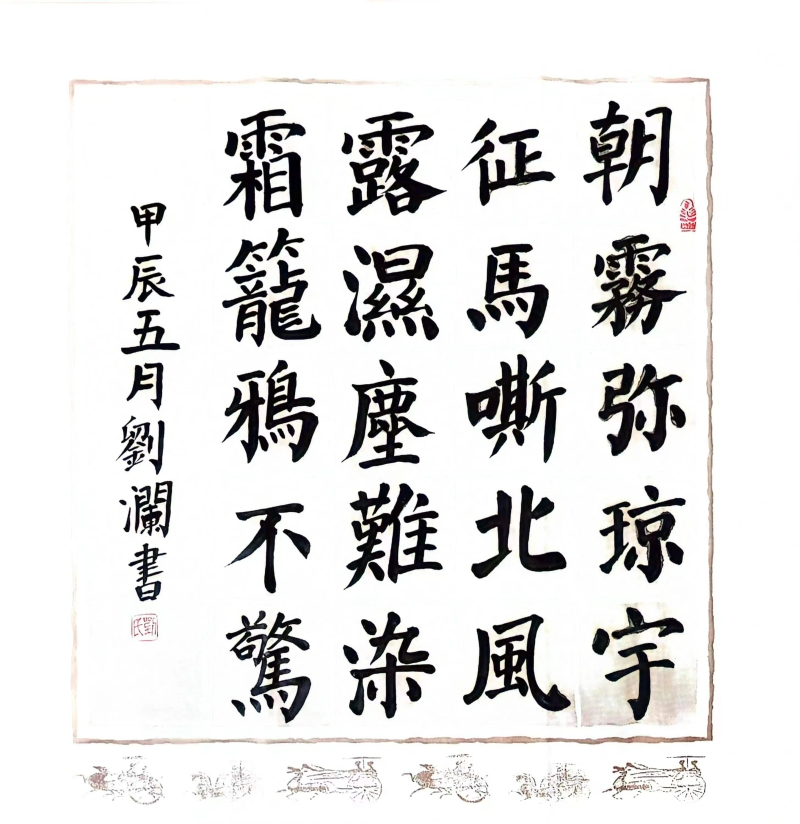 朝霧弥琼宇
征馬嘶北風
露濕塵難染
霜籠鴉不驚
甲辰五月劉瀾書
劉氏